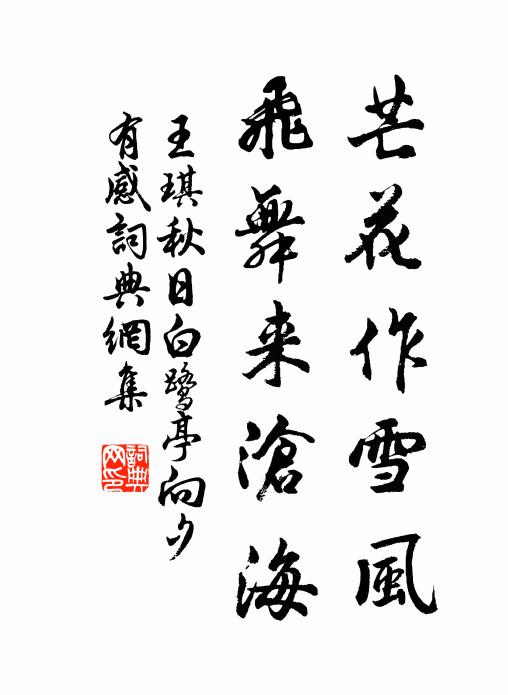 芒花作雪風
飛舞来滄海
王琪秋日白鷺亭向夕
有感詞典網集
詞典網印